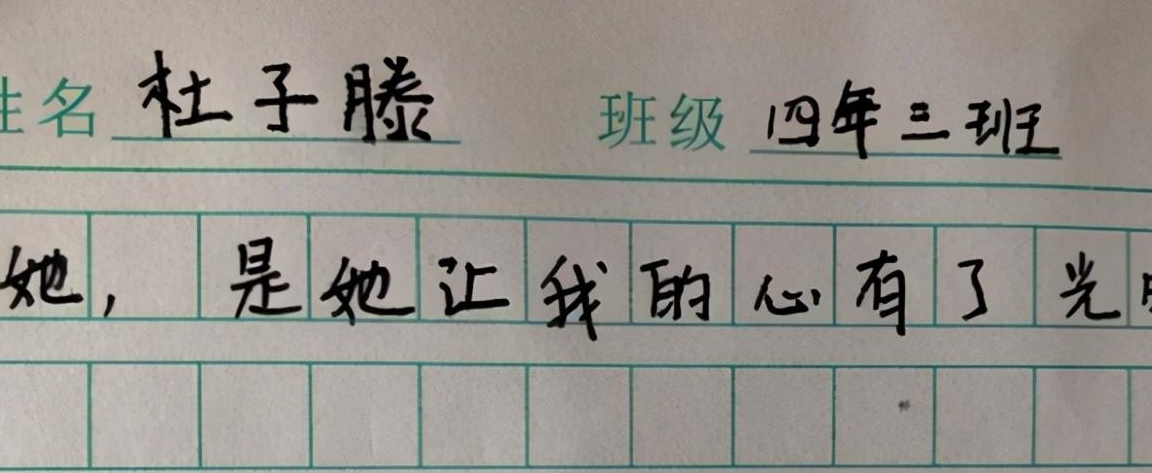 姓名 杜子滕 班级 四年三班
她，是她让我的心有了光